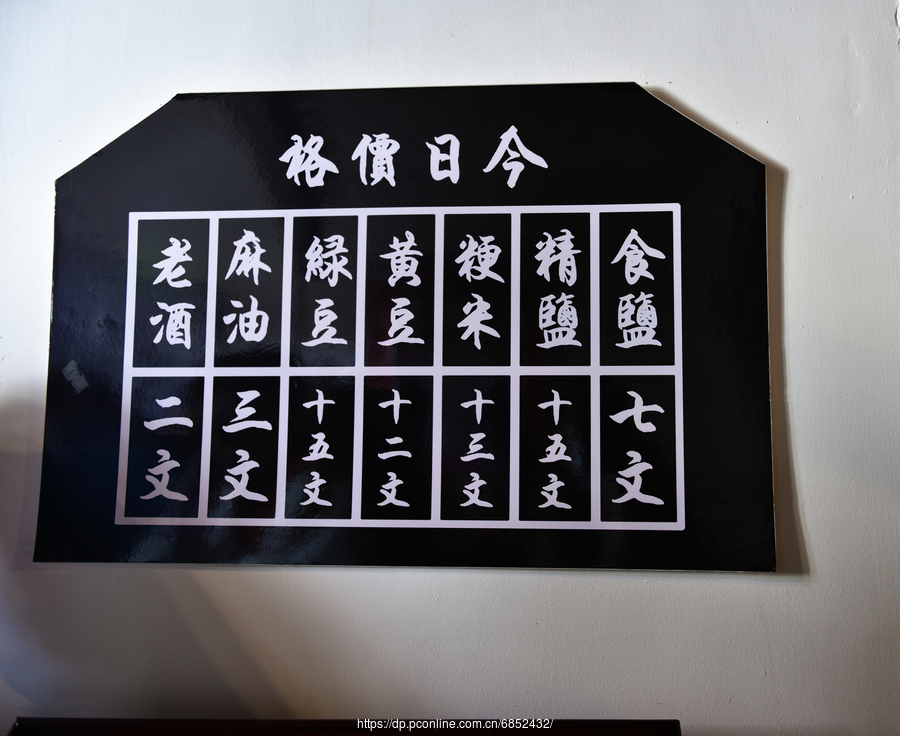 今日價格
食鹽
七文
精鹽
十五文
粳米
十三文
黃豆
十二文
綠豆
十五文
麻油
三文
老酒
二文
https://dp.pconline.com.cn/6852432/